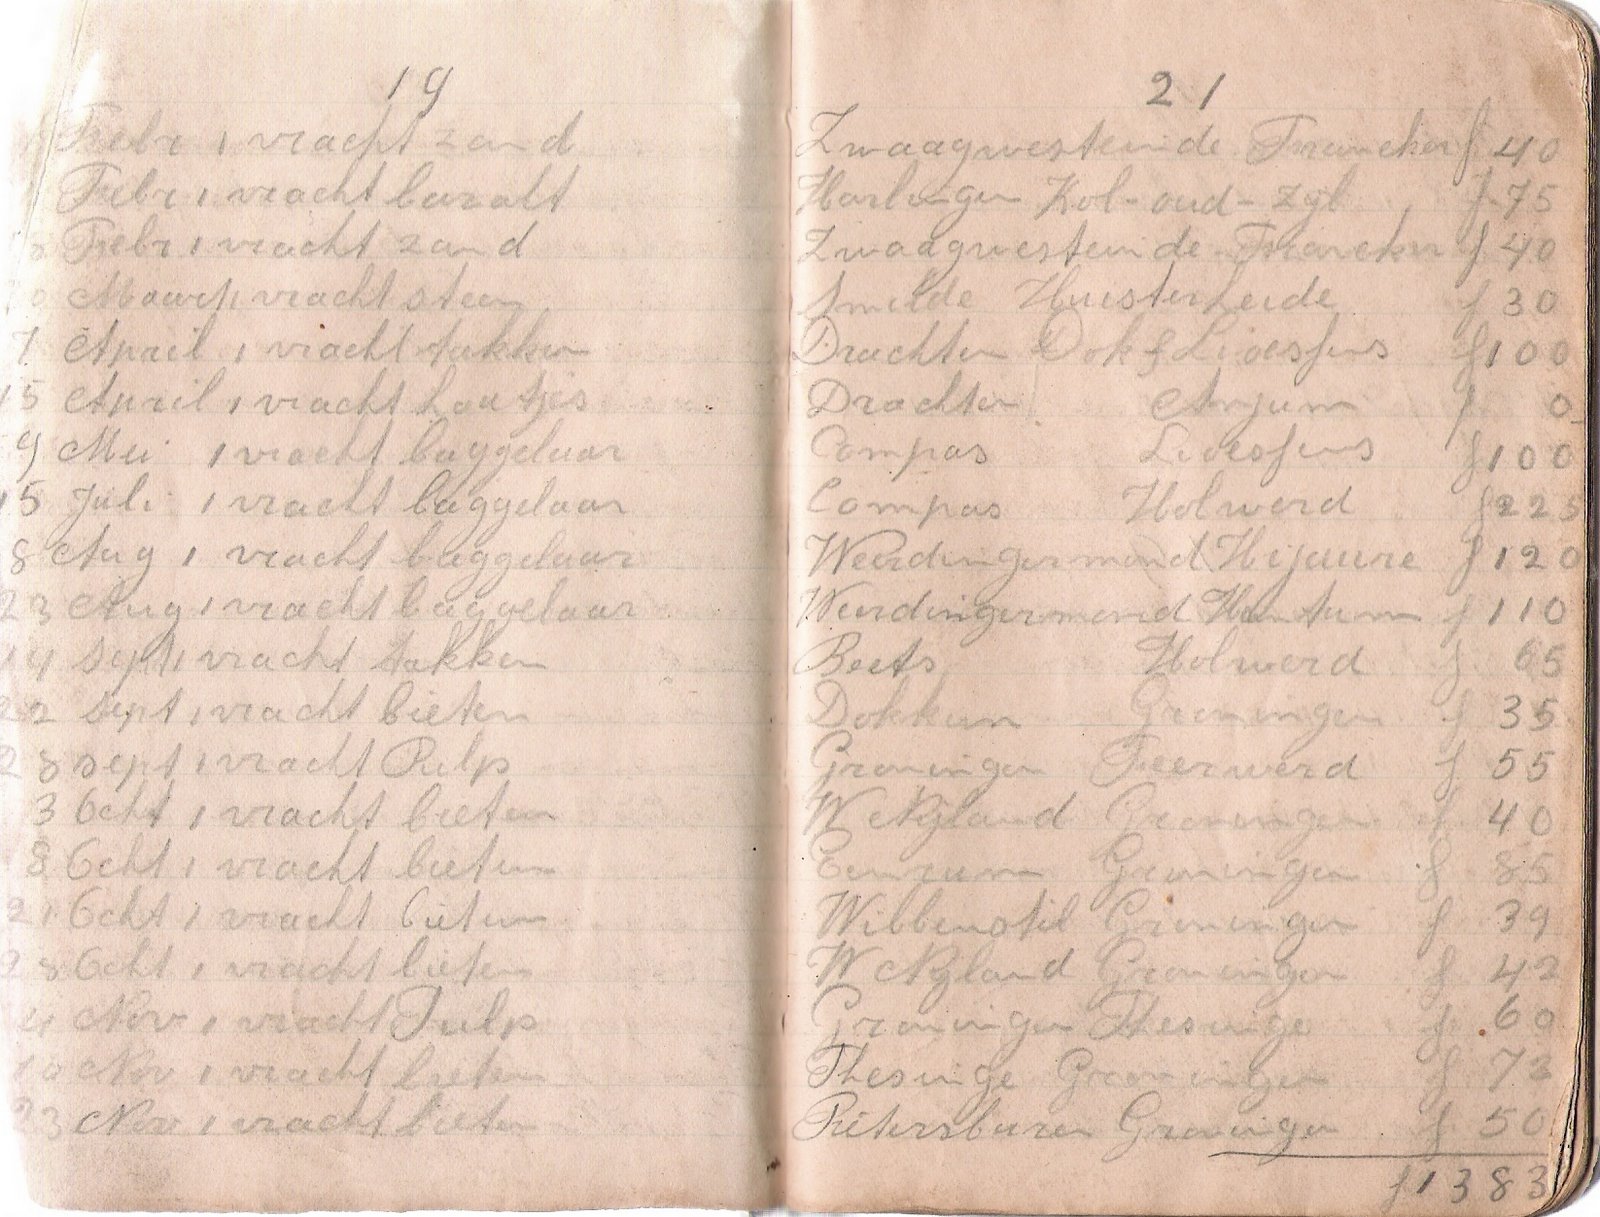 19 21
Febr 1 vracht zand Zwaagwesteinde Franeker f 40
Febr 1 vracht bazalt Harlingen Kol-oud-zyl f 75
Febr 1 vracht zand Zwaagwesteinde Franeker f 40
Maart 1 vracht steen Smilde Huisterheide f 30
7 April 1 vracht takken Drachten Dok & Lioesfens f 100
15 April 1 vracht houtjes Drachten Anjum f 0
9 Mei 1 vracht baggelaar Compas Lioesfens f 100
15 Juli 1 vracht baggelaar Compas Holwerd f 225
8 Aug 1 vracht baggelaar Weerdingermond Hijaure f 120
23 Aug 1 vracht baggelaar Weerdingermond Hantum f 110
14 Sept 1 vracht takken Beets Holwerd f 65
22 Sept 1 vracht bieten Dokkum Groningen f 35
28 sept 1 vracht Pulp Groningen Feerwerd f 55
3 Ocht 1 vracht bieten W Nyland Groningen f 40
8 Ocht 1 vracht bieten Eenrum Groningen f 85
21 Ocht 1 vracht bieten Wibbenstil Groningen f 39
28 Ocht 1 vracht bieten W Nyland Groningen f 42
4 Nov 1 vracht Pulp Groningen Thesinge f 60
10 Nov 1 vracht bieten Thesinge Groningen f 72
23 Nov 1 vracht bieten Pietersburen Groningen f 50
f 1383